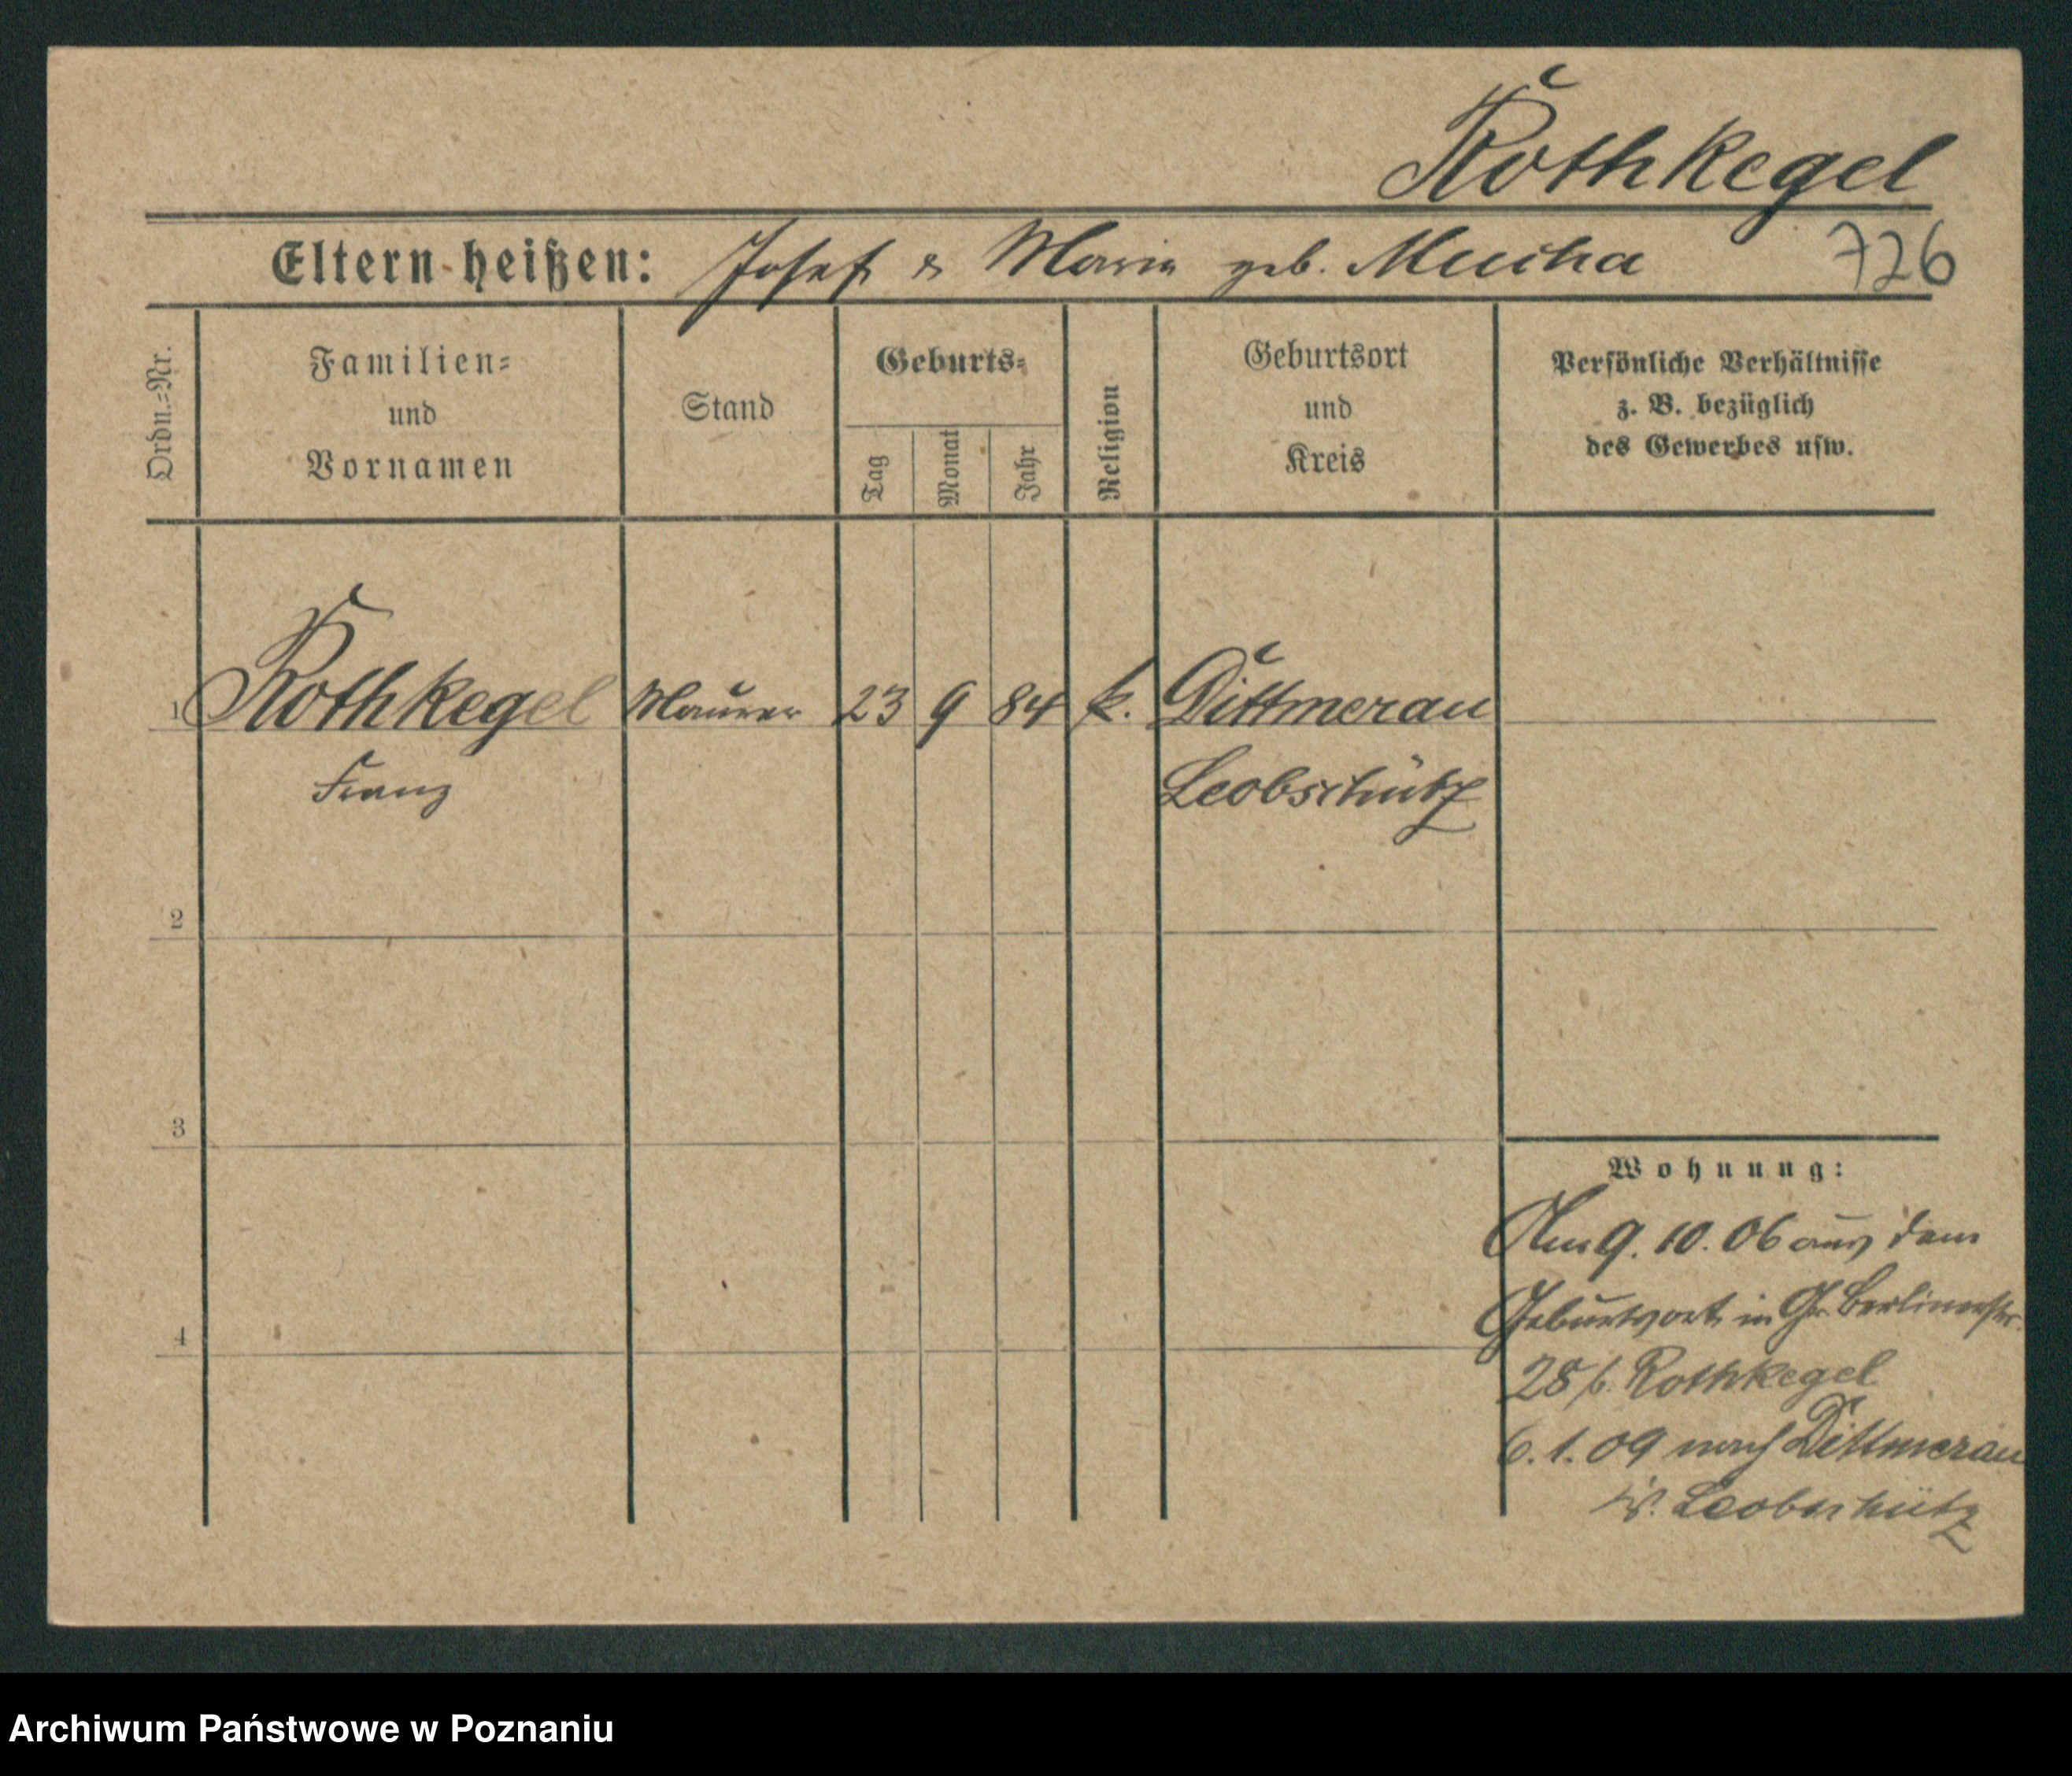 Rothkegel
Eltern heißen: Josef & Maria geb. Mucha 726
Ordn.=Nr.
Familien=
und
Vornamen
Stand
Geburts=
Tag
Monat
Jahr
Religion
Geburtsort
und
Kreis
Persönliche Verhältnisse
z. B. bezüglich
des Gewerbes usw.
1 Rothkegel Maurer 23 9 84 k. Dittmerau
Franz Leobschütz
2
3
4
Wohnung:
Am 9. 10. 06 aus dem
Geburtsort in Gr. Berlinerstr.
28 b. Rothkegel
6. 1. 09 nach Dittmerau
Leobschütz
Archiwum Państwowe w Poznaniu